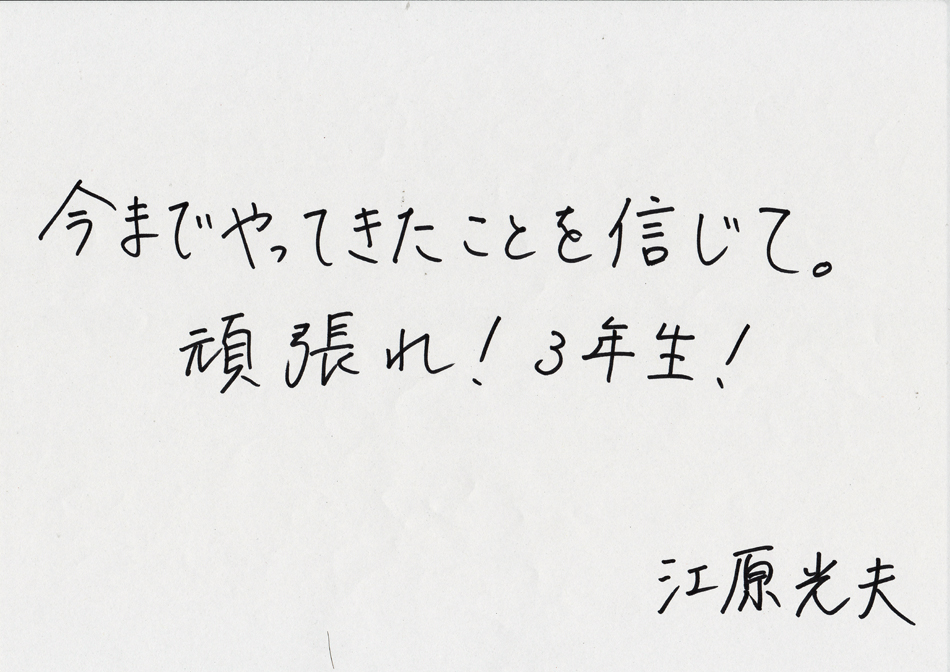 今までやってきたことを信じて。
頑張れ!3年生!
江原光夫